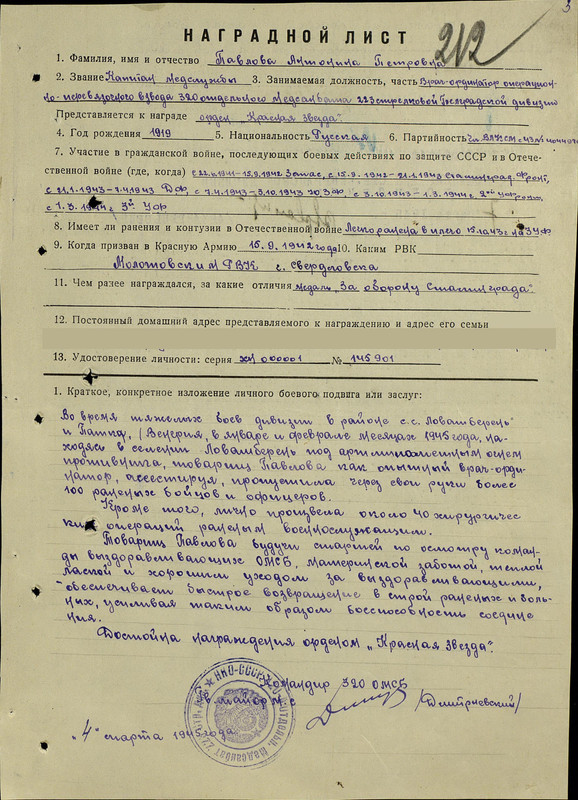 НАГРАДНОЙ ЛИСТ
212
3
1. Фамилия, имя и отчество Павлова Антонина Петровна
2. Звание Капитан медслужбы 3. Занимаемая должность, часть Врач-ординатор операцион-
но-перевязочного взвода 320 отдельного Медсанбата 223 стрелковой Белградской дивизии
Представляется к награде орден „Красная Звезда"
4. Год рождения 1919 5. Национальность Русская 6. Партийность чл. ВЛКСМ с
7. Участие в гражданской войне, последующих боевых действиях по защите СССР и в Отече-
ственной войне (где, когда) Запас, с 15.9.1942 - 21.1.1943 Сталинград. Фронт,
с 21.1.1943 - 7.4.1943 ДФ, с 7.4.1943 - 3.10.1943 ЮЗФ, с 3.10.1943 - 1.3.1944 2ой Укр
с 1.3.1944 г. 3й УФ
8. Имеет ли ранения и контузии в Отечественной войне Легко ранена в плечо
9. Когда призван в Красную Армию 15.9.1942 года 10. Каким РВК
Молотовским РВК г. Свердловска
11. Чем ранее награждался, за какие отличия медаль „За оборону Сталинграда".
12. Постоянный домашний адрес представляемого к награждению и адрес его семьи
13. Удостоверение личности: серия ХИ 000001 № 145901
1. Краткое, конкретное изложение личного боевого подвига или заслуг:
Во время тяжелых боев дивизии в районе с.с. Ловашберень
и Патка, /Венгрия, в январе и феврале месяцах 1945 года, на-
ходясь в селении Ловашберень под артминометным огнем
противника, товарищ Павлова как опытный врач-орди-
натор, ассистируя, пропустила через свои руки более
100 раненых бойцов и офицеров.
Кроме того, лично произвела около 40 хирургичес-
ких операций раненым военнослужащим.
Товарищ Павлова будучи старшей по осмотру коман-
ды выздоравливающих ОМСБ, материнской заботой, теплой
лаской и хорошим уходом за выздоравливающими,
обеспечивает быстрое возвращение в строй раненых и боль-
ных, усиливая таким образом боеспособность соедине-
ния.
Достойна награждения орденом „Красная Звезда".
Командир 320 ОМСБ
гв. майор м/с
/Дмитриевский/
„4" марта 1945 года.
НКО-СССР